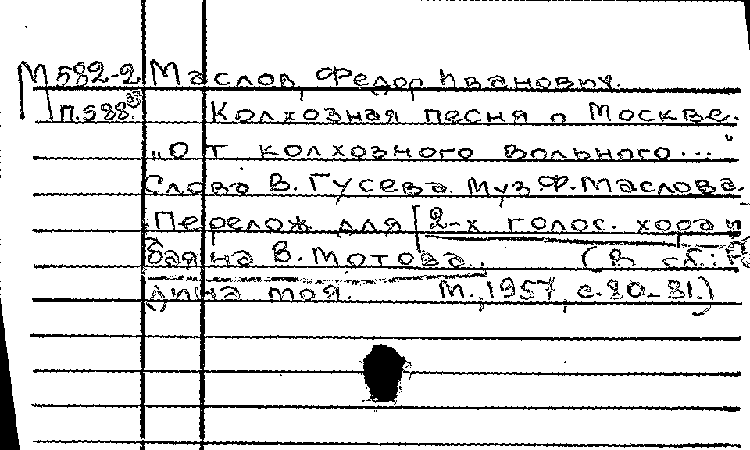 М582-2 Маслов, Федор Иванович.
П.588. Колхозная песня о Москве.
„От колхозного вольного..."
Слова В. Гусева. Муз. Ф. Маслова.
Перелож. для [2-х голос. хора и
баяна В. Мотова. (В сб.: Ро
дина моя. М., 1957, с. 80-81.)